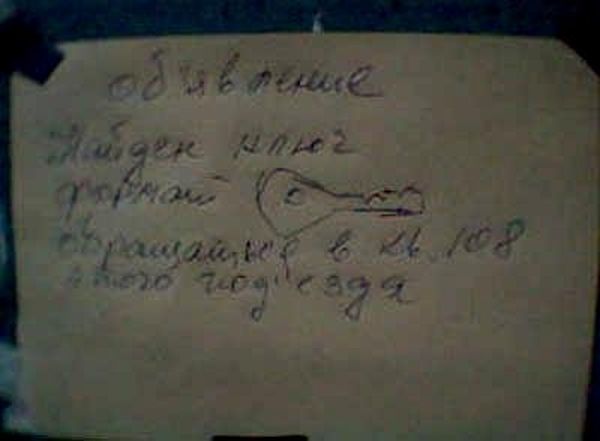 объявление
Найден ключ
формат
обращаться в кв. 108
этого под'езда